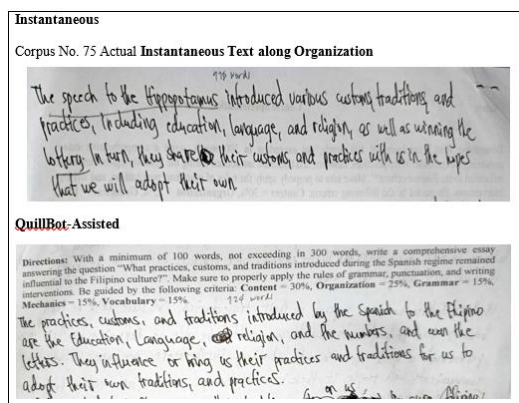 Instantaneous
Corpus No. 75 Actual Instantaneous Text along Organization
words
The speech to the Hippopotamus introduced various customs, traditions, and
practices, Including education, language, and religion, as well as winning the
lottery. In turn, they share their customs, and practices with us in the hopes
that we will adopt their own
QuillBot-Assisted
Directions: With a minimum of 100 words, not exceeding in 300 words, write a comprehensive essay
answering the question "What practices, customs, and traditions introduced during the Spanish regime remained
influential to the Filipino culture?". Make sure to properly apply the rules of grammar, punctuation, and writing
interventions. Be guided by the following criteria: Content - 30%, Organization - 25%, Grammar - 15%,
Mechanics - 15%, Vocabulary - 15%.
124 words
The practices, customs, and traditions introduced by the Spanish to the Filipino
are the Education, Language, religion, and the numbers, and even the
letters. They influence or bring us their practices and traditions for us to
adopt their own traditions, and practices.
on us